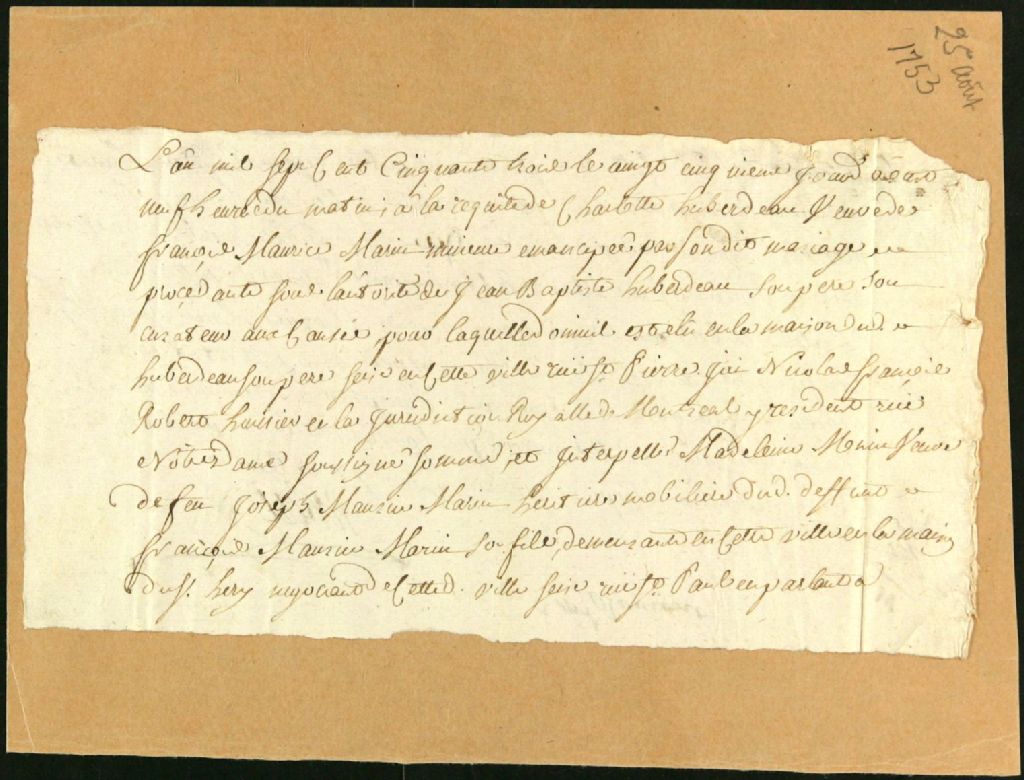 25 août
1753
L'an mil sept Cent Cinquante trois le vingt cinquieme Jour
neuf heures du matin, a la requête de Charlotte huberdeau Veuve de
françois Maurice Marin mineure emancipée par son dit mariage
procédante sous l'autorité de Jean Baptiste huberdeau son pere son
curateur aux Causes, pour laquelle domicile est elu en la maison dud.
huberdeau son pere seise en Cette ville rüe St. Pierre, J'ai Nicolas françois
Robert huissier en la Jurisdiction Royalle de Montreal y resident rüe
Nôtre dame soussigné sommé et Interpellé Madeleine Veuve
de feu Joseph Maurice Marin heritiere mobiliere dud. deffunt
françois Maurice Marin son fils, demeurante en Cette ville en la maison
du Sr. hery negociant de Cetted. ville seise rüe St. Paul en parlant a